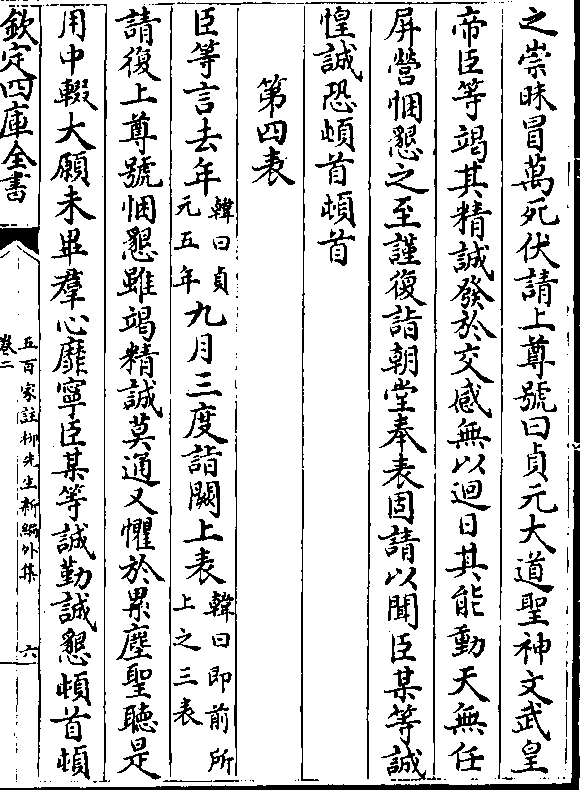 之崇昧冒萬死伏請上尊號曰貞元大道聖神文武皇
帝臣等竭其精誠發於交感無以迴日其能動天無任
屏營悃懇之至謹復詣朝堂奉表固請以聞臣某等誠
惶誠恐頓首頓首
第四表
臣等言去年韓曰貞元五年九月三度詣闕上表韓曰即前所上之三表
請復上尊號悃懇雖竭精誠莫通又懼於累塵聖聽是
用中輟大願未畢羣心靡寧臣某等誠勤誠懇頓首頓
欽定四庫全書
五百家註柳先生新編外集
卷二
六